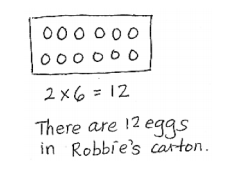 2 × 6 = 12
There are 12 eggs
in Robbie's carton.